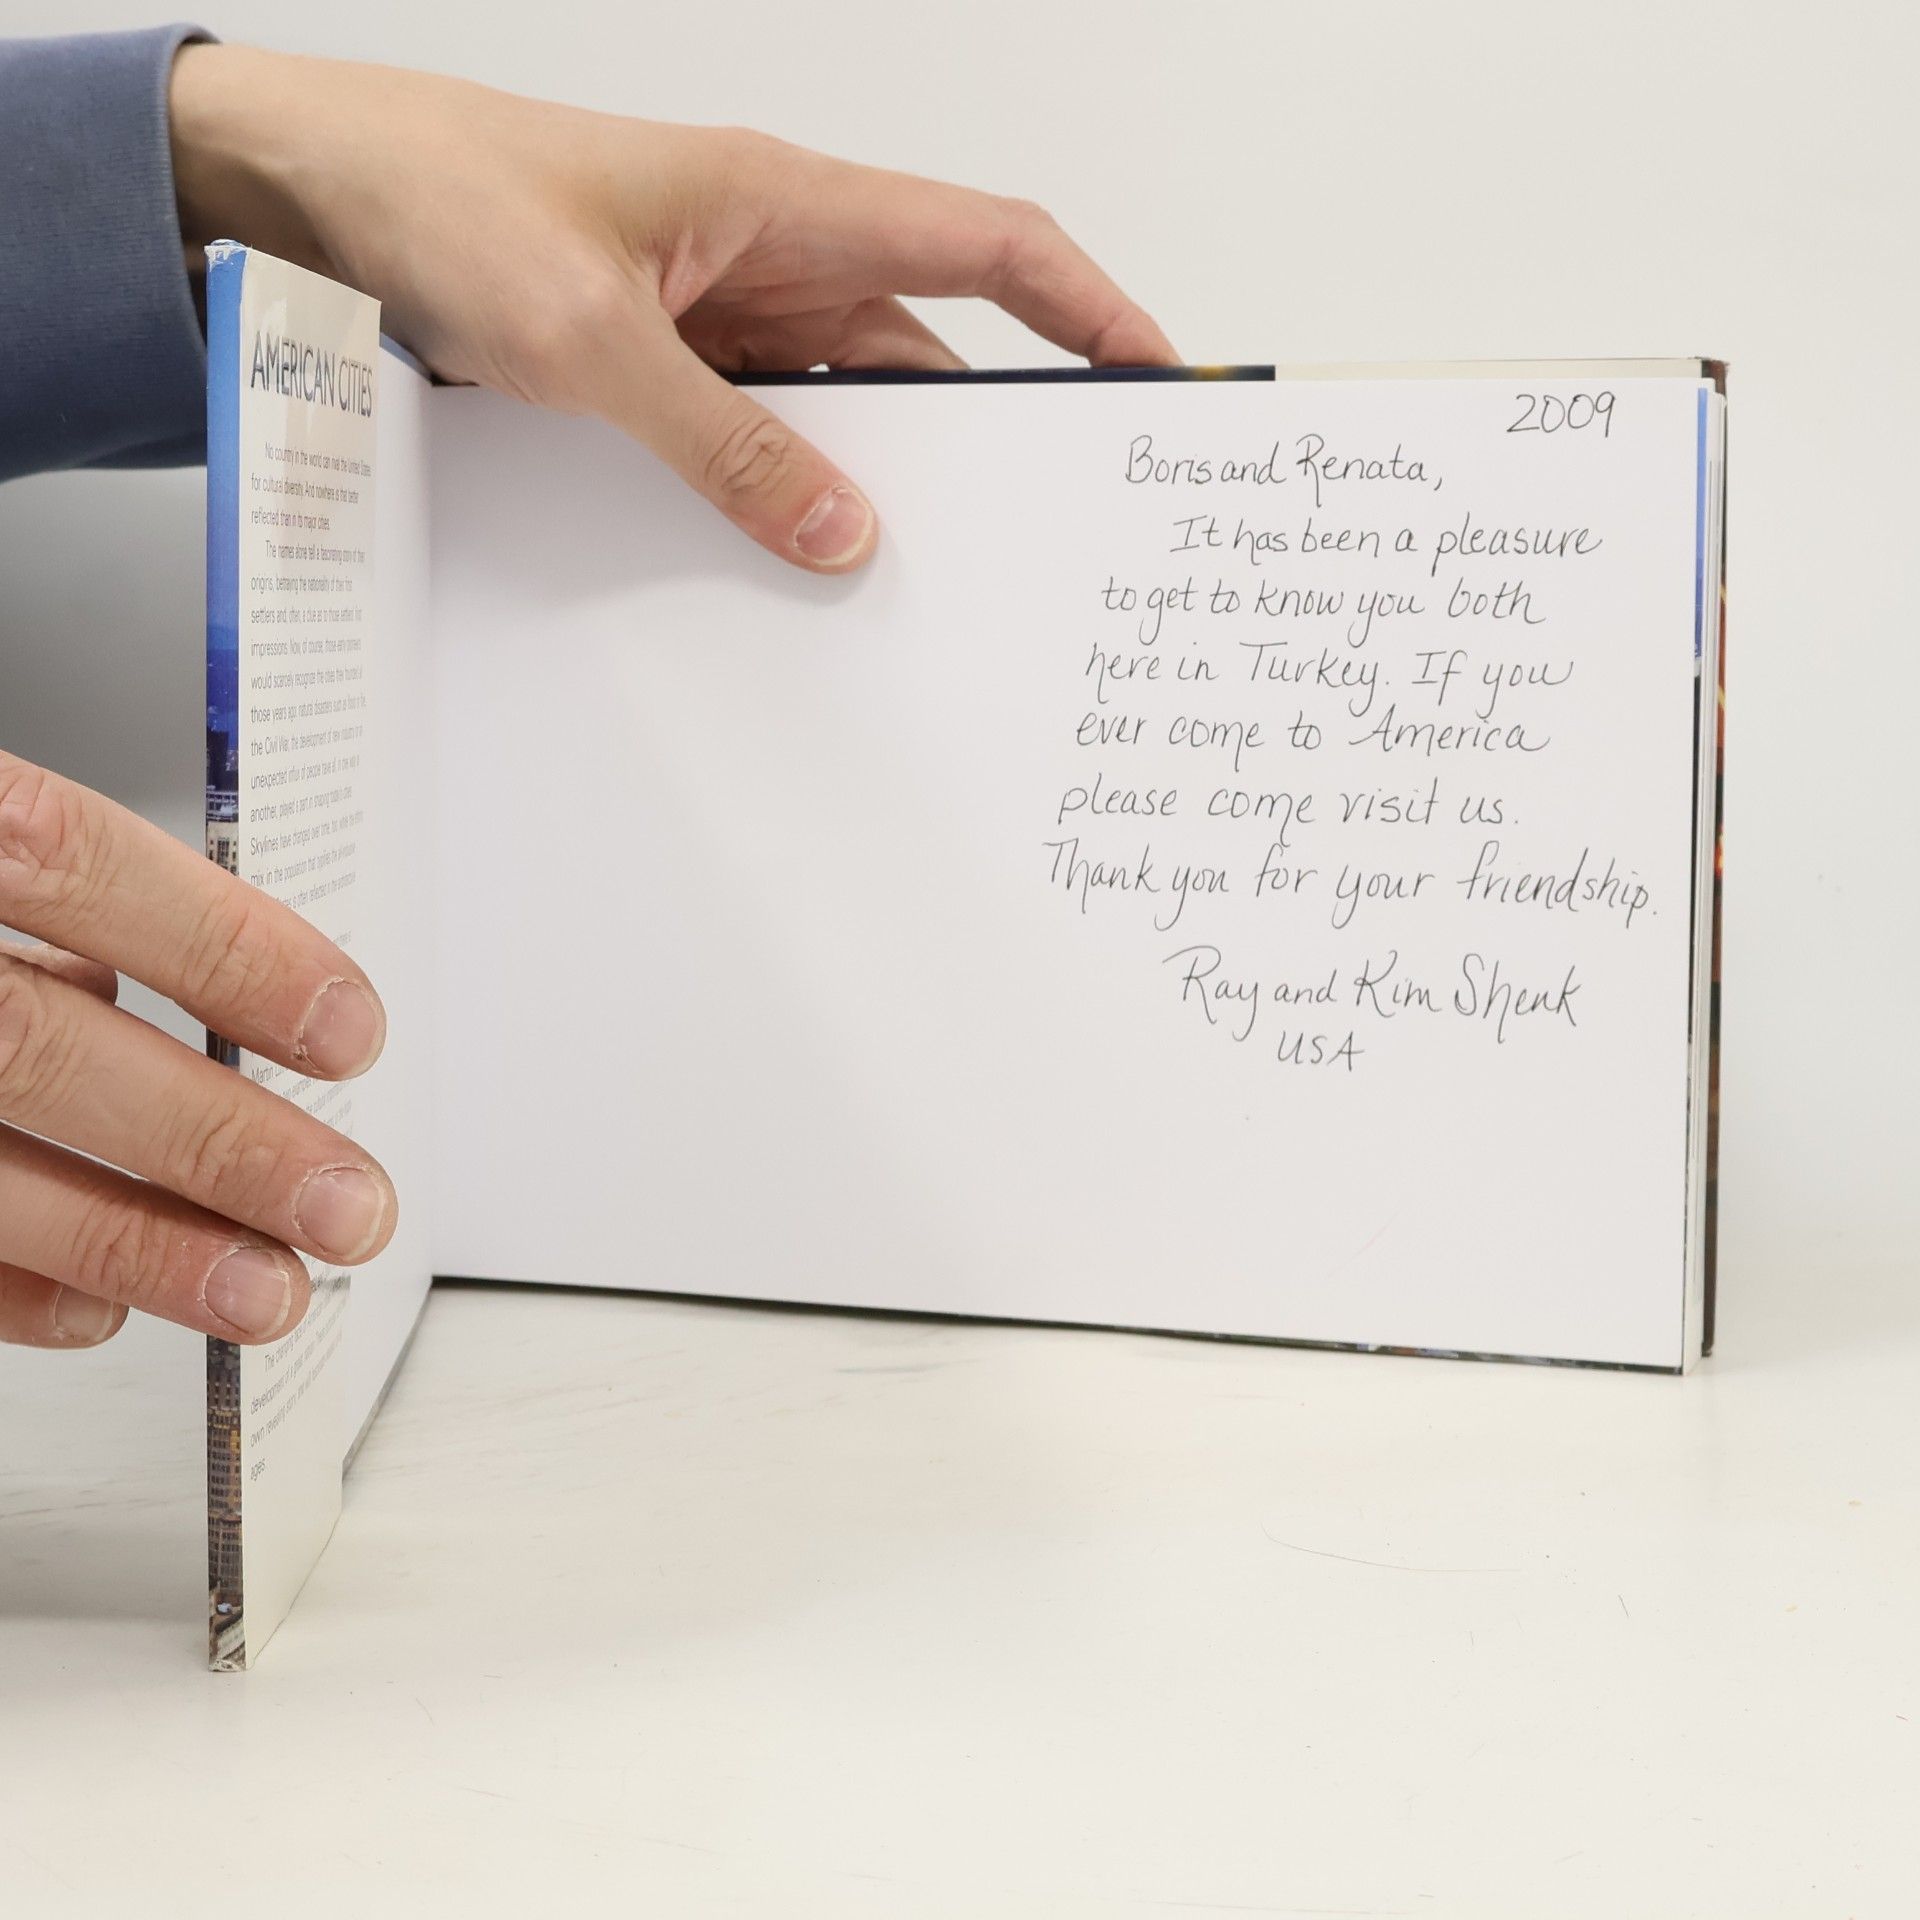 AMERICAN CITIES
No country in the world can rival the United States
for cultural diversity. And nowhere is that better
reflected than in its major cities.
The names alone tell a fascinating story of their
origins, betraying the nationality of their first
settlers and, often, a clue as to those settlers' first
impressions. Now, of course, those early pioneers
would scarcely recognize the cities they founded all
those years ago; natural disasters such as flood or fire,
the Civil War, the development of new industry or an
unexpected influx of people have all, in one way or
another, played a part in shaping today's cities.
Skylines have changed over time, too, while the ethnic
mix in the population that typifies the
is often reflected in the architecture
Martin
The changing face of
development of a great nation.
own revealing story, and will
ages.
2009
Boris and Renata,
It has been a pleasure
to get to know you both
here in Turkey. If you
ever come to America
please come visit us.
Thank you for your friendship.
Ray and Kim Shenk
USA